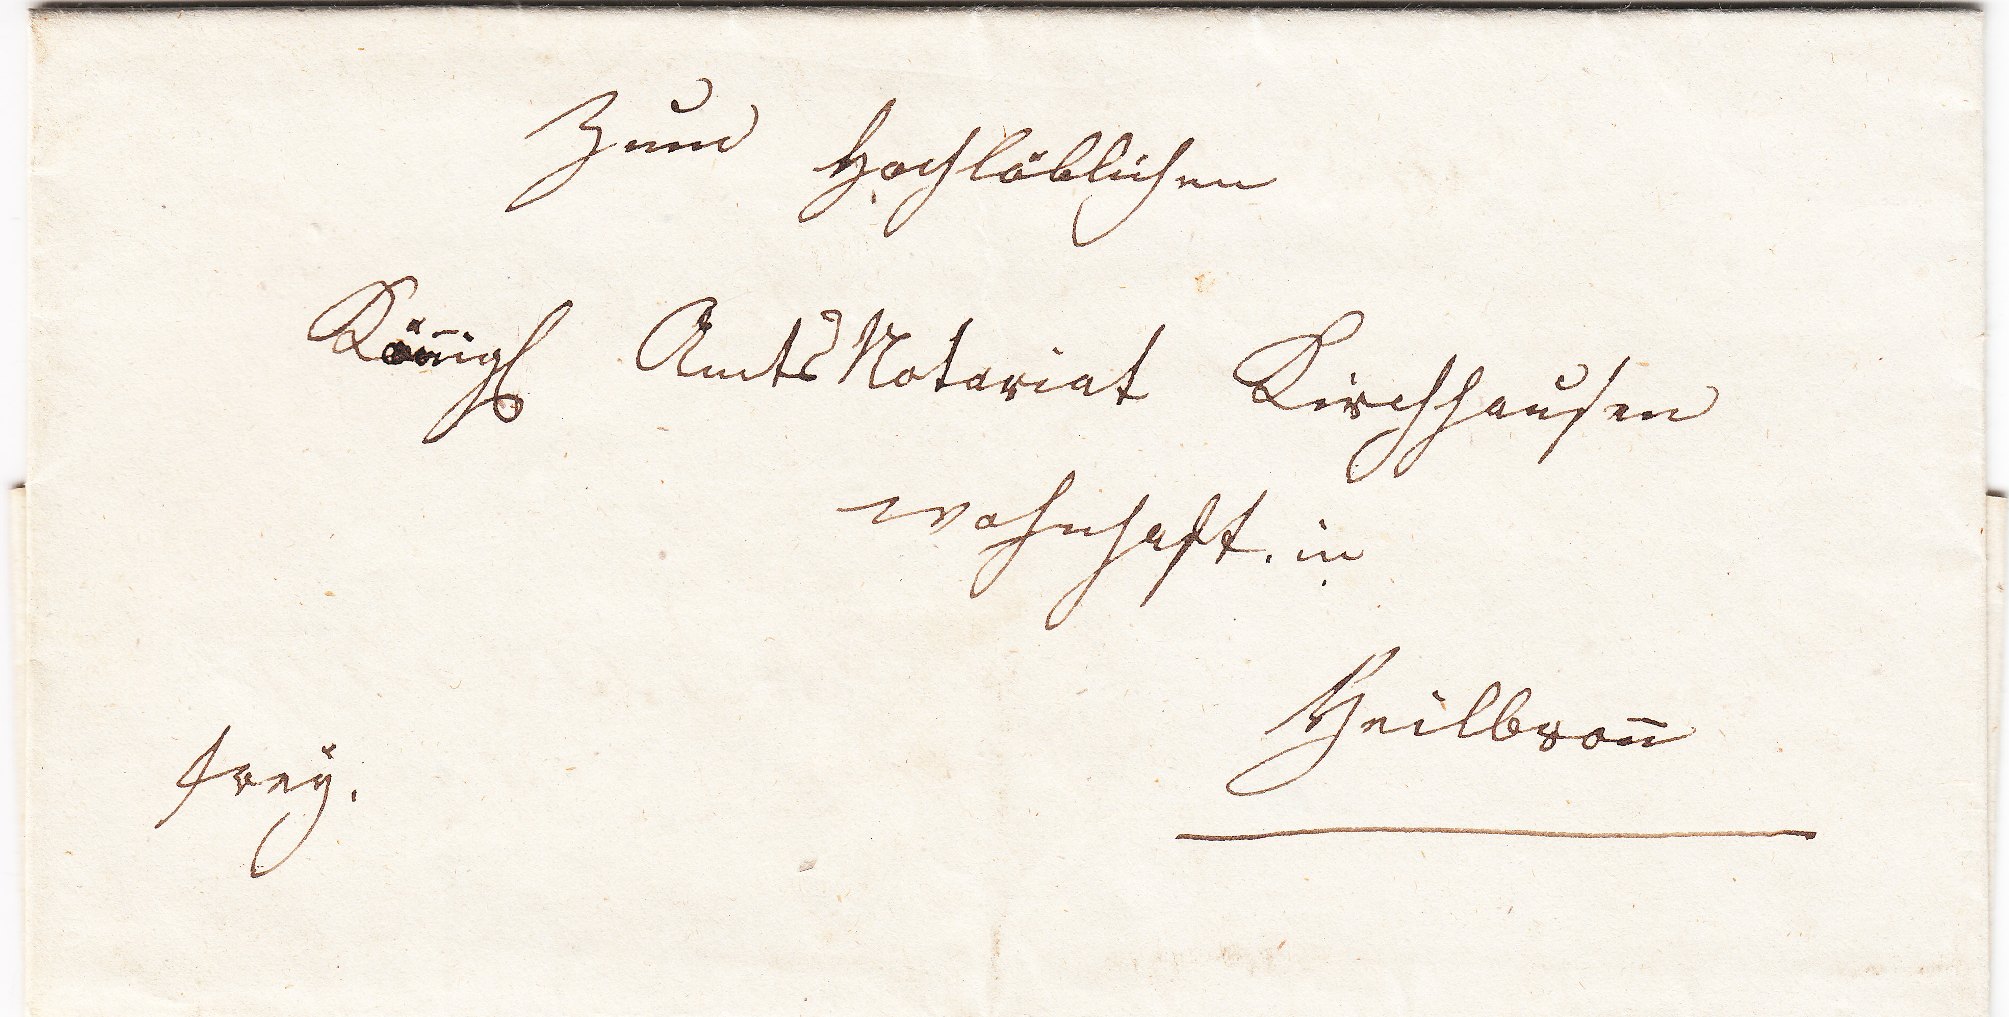 Zum Hochlöblichen
Königl AmtsNotariat Kirchhausen
wohnhaft. in
Heilbron̅
frey.